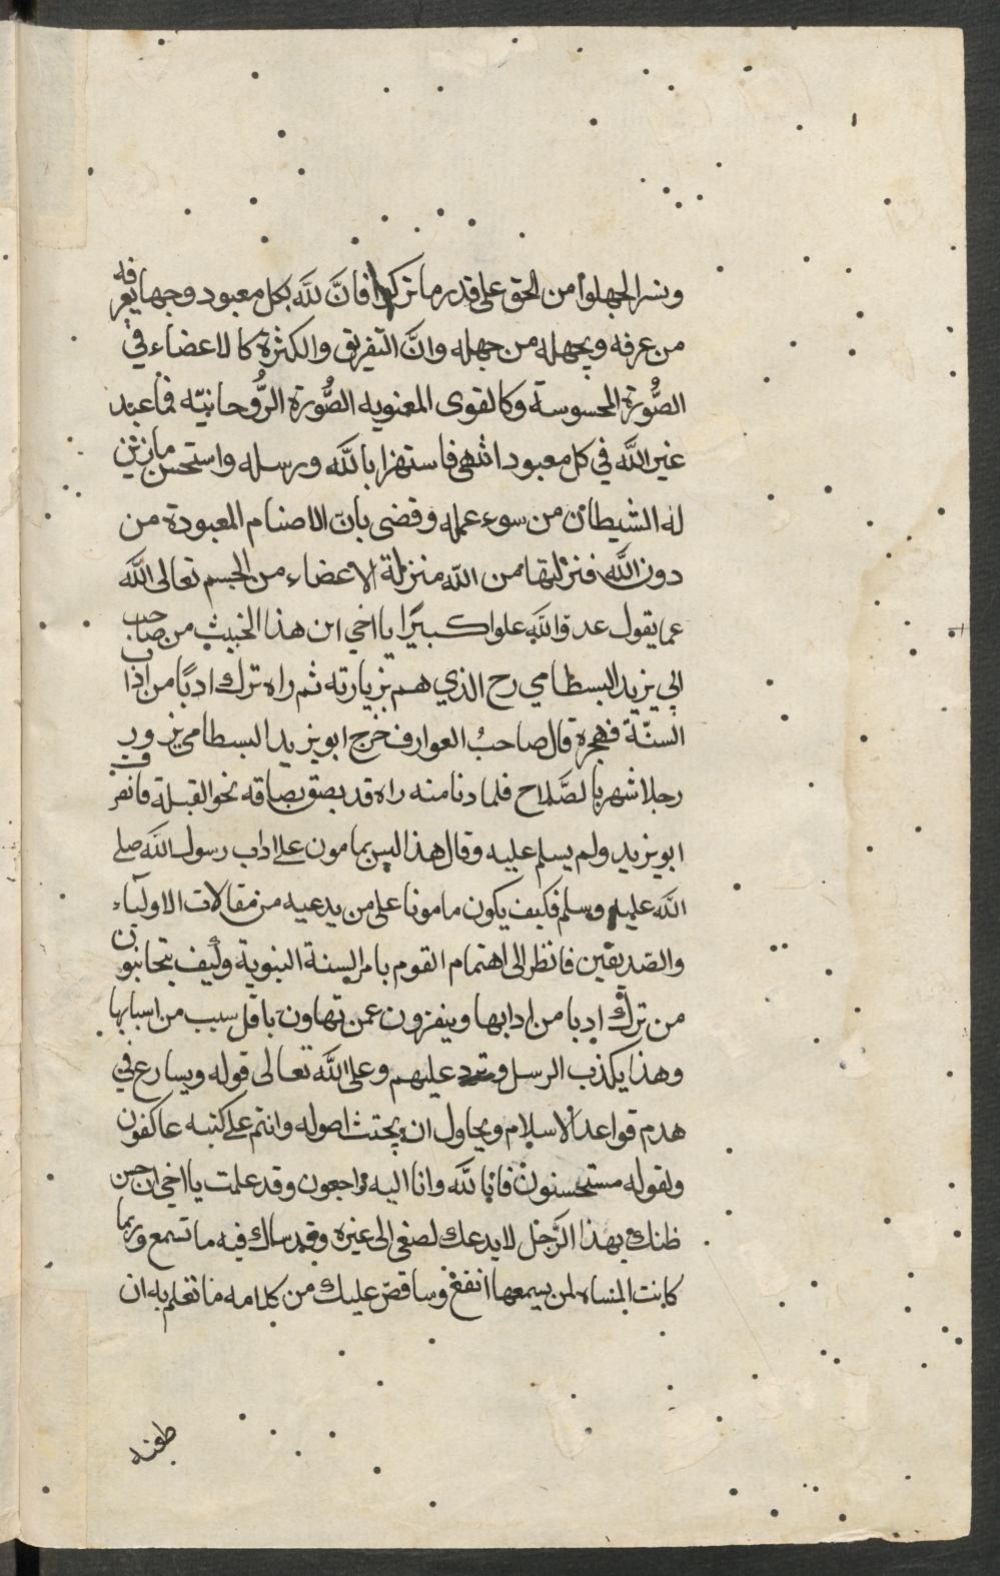 ونسرا لجهلوا من الحق على قدر ما تركوا فان لله بكل معبود وجها يعرفه
من عرفه ويجهله من جهله وانَّ التفريق والكثرة كالاعضاء في
الصُّورة المحسوسة وكالقوى المعنويه الصُّورة الرُّوحانيّه فما عبد
غير الله في كل معبود انتهى فاستهزا بالله ورسله واستحسن ما زين
له الشيطان من سوء عمله وقضى بان الاصنام المعبودة من
دون الله فنزلتها من الله منزلة الاعضاء من الجسم تعالى الله
عما يقول عدو الله علوا كبيرًا يا اخي اين هذا الخبيث من صاحب
ابي يزيد البسطامي رح الذي هم بزيارته ثم راه ترك ادبًا من اداب
السنّة فهجره قال صاحبُ العوارف خرج ابو يزيد البسطامي يزور
رجلا شهر بالصَّلاح فلما دنا منه راه قد بصق بصاقه نحو القبلة فانصرف
ابو يزيد ولم يسلم عليه وقال هذا ليس بمامون على اداب رسول الله صلى
الله عليه وسلم فكيف يكون مامونا على من يدعيه من مقالات الاولياء
والصديقين فانظر الى اهتمام القوم بامر السنة النبوية وكيف يتجانبون
من ترك ادبا من ادابها وينفرون عمن تهاون باقل سبب من اسبابها
وهذا يكذب الرسل ويرد عليهم وعلى الله تعالى قوله ويسارع في
هدم قواعد الاسلام ويحاول ان يجتث اصوله وانتم على كتبه عاكفون
ولقوله مستحسنون فانا لله وانا اليه راجعون وقد علمت يا اخي ان حسن
ظنك بهذا الرَّجل لا يدعك لصغى الى غيره وقد ساك فيه ما تسمع وربما
كانت المنساه لمن يسمعها انفع وساقصّ عليك من كلامه ما تعلم به ان